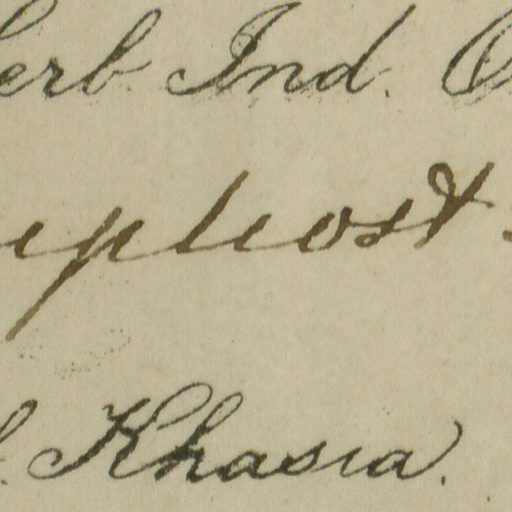 erb. Ind. O
eplost
Khasia.